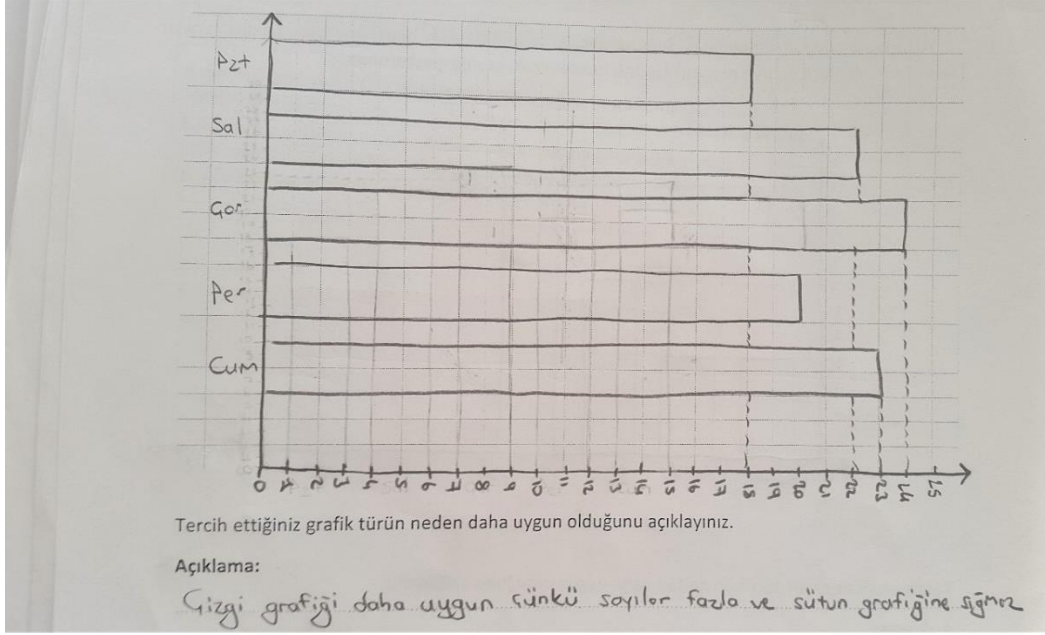 Pzt
Sal
Çar
Per
Cum
0 1 2 3 4 5 6 7 8 9 10 11 12 13 14 15 16 17 18 19 20 21 22 23 24 25
Tercih ettiğiniz grafik türün neden daha uygun olduğunu açıklayınız.
Açıklama:
Çizgi grafiği daha uygun çünkü sayılar fazla ve sütun grafiğine sığmaz